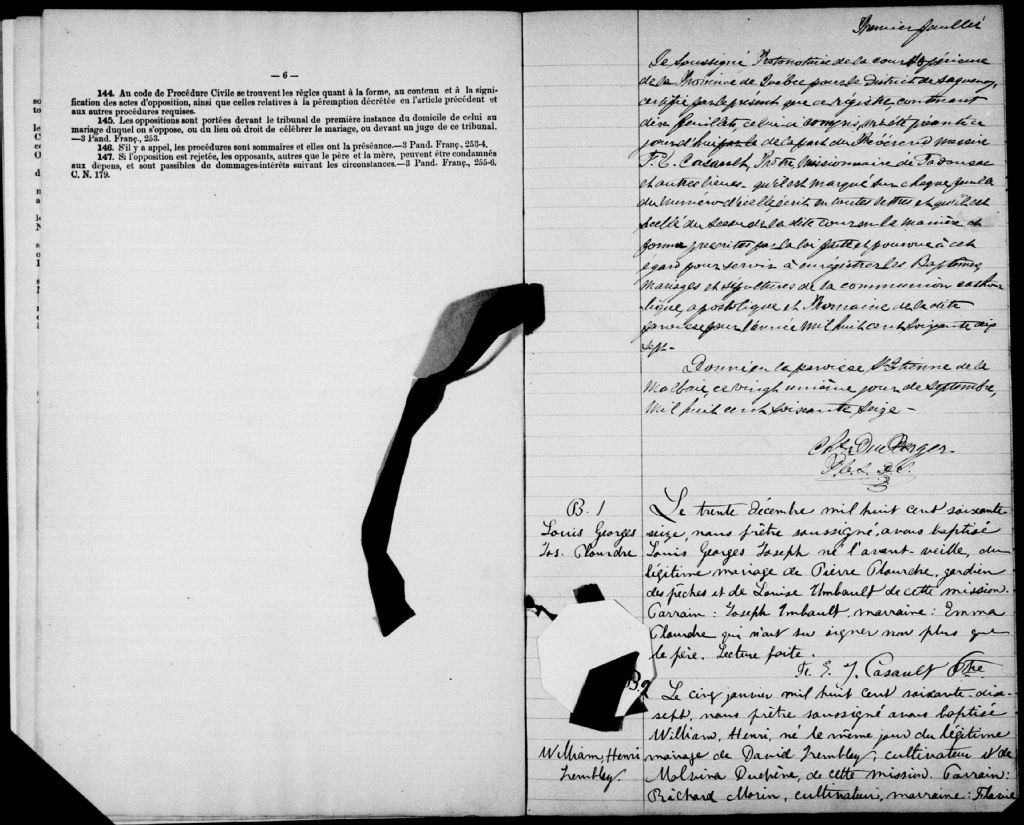 — 6 —
144. Au code de Procédure Civile se trouvent les règles quant à la forme, au contenu et à la signi-
fication des actes d'opposition, ainsi que celles relatives à la péremption décrétée en l'article précédent et
aux autres procédures requises.
145. Les oppositions sont portées devant le tribunal de première instance du domicile de celui au
mariage duquel on s'oppose, ou du lieu où droit de célébrer le mariage, ou devant un juge de ce tribunal.
—3 Pand. Franç., 253.
146. S'il y a appel, les procédures sont sommaires et elles ont la préséance.—3 Pand. Franç., 253-4.
147. Si l'opposition est rejetée, les opposants, autres que le père et la mère, peuvent être condamnés
aux dépens, et sont passibles de dommages-intérêts suivant les circonstances.—3 Pand. Franç., 255-6.
C. N. 179.
Premier feuillet
Je soussigné Protonotaire de la cour Supérieure
de la Province de Québec pour le District de Saguenay,
certifie par le présent que ce régistre contenant
dix feuillets, celui ci compris, m'a été présenté ce
jourd'hui de la part du Révérend messire
F. E. Casault, Ptre, Missionnaire de Tadousac
et autres lieux, qu'il est marqué sur chaque feuillet
du numéro d'icelle écrit en toutes lettres et qu'il est
scellé du sceau de la dite cour en la manière et
forme prescrites par la loi faite et pourvue à cet
égard pour servir à enrégistrer les Baptêmes,
Mariages et sépultures de la communion catho-
lique, apostolique et Romaine de la dite
paroisse pour l'année Mil huit cent soixante dix
sept.-
Donné en la paroisse St Etienne de la
Malbaie, ce vingt unième jour de Septembre,
Mil huit cent soixante seize -
Chs. Du Berger
P. C. S. D. S.
B. 1
Louis Georges
Jos. Plourdre
Le trente décembre mil huit cent soixante
seize, nous prêtre soussigné, avons baptisé
Louis Georges Joseph né l'avant-veille, du
légitime mariage de Pierre Plourdre, gardien
des pêches et de Louise Imbault de cette mission.
Parrain : Joseph Imbault, marraine : Emma
Plourdre qui n'ont su signer non plus que
le père. Lecture faite.
F. E. J. Casault Ptre
B. 2
William, Henri
Trembley.
Le cinq janvier mil huit cent soixante-dix-
sept, nous prêtre soussigné avons baptisé
William, Henri, né le même jour du légitime
mariage de David Trembley, cultivateur et de
Malvina Duchêne, de cette mission. Parrain :
Richard Morin, cultivateur, marraine : Flavie